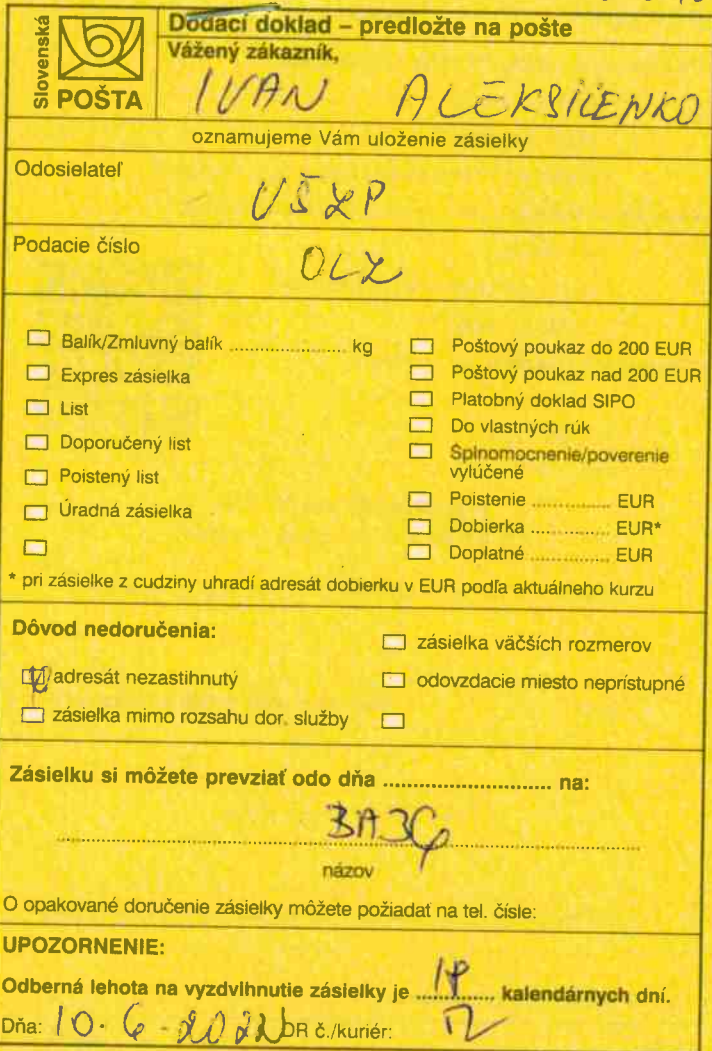 Slovenská
POŠTA
Dodací doklad – predložte na pošte
Vážený zákazník,
IVAN ALEKSIIENKO
oznamujeme Vám uloženie zásielky
Odosielateľ
VŠZP
Podacie číslo
OLZ
Balík/Zmluvný balík ...................... kg
Expres zásielka
List
Doporučený list
Poistený list
Úradná zásielka
Poštový poukaz do 200 EUR
Poštový poukaz nad 200 EUR
Platobný doklad SIPO
Do vlastných rúk
Splnomocnenie/poverenie
vylúčené
Poistenie ............... EUR
Dobierka ............... EUR*
Doplatné ............... EUR
* pri zásielke z cudziny uhradí adresát dobierku v EUR podľa aktuálneho kurzu
Dôvod nedoručenia:
adresát nezastihnutý
zásielka mimo rozsahu dor. služby
zásielka väčších rozmerov
odovzdacie miesto neprístupné
Zásielku si môžete prevziať odo dňa ........................... na:
BA36
názov
O opakované doručenie zásielky môžete požiadať na tel. čísle:
UPOZORNENIE:
Odberná lehota na vyzdvihnutie zásielky je 18 kalendárnych dní.
Dňa: 10.6.2022 DR č./kuriér: 12